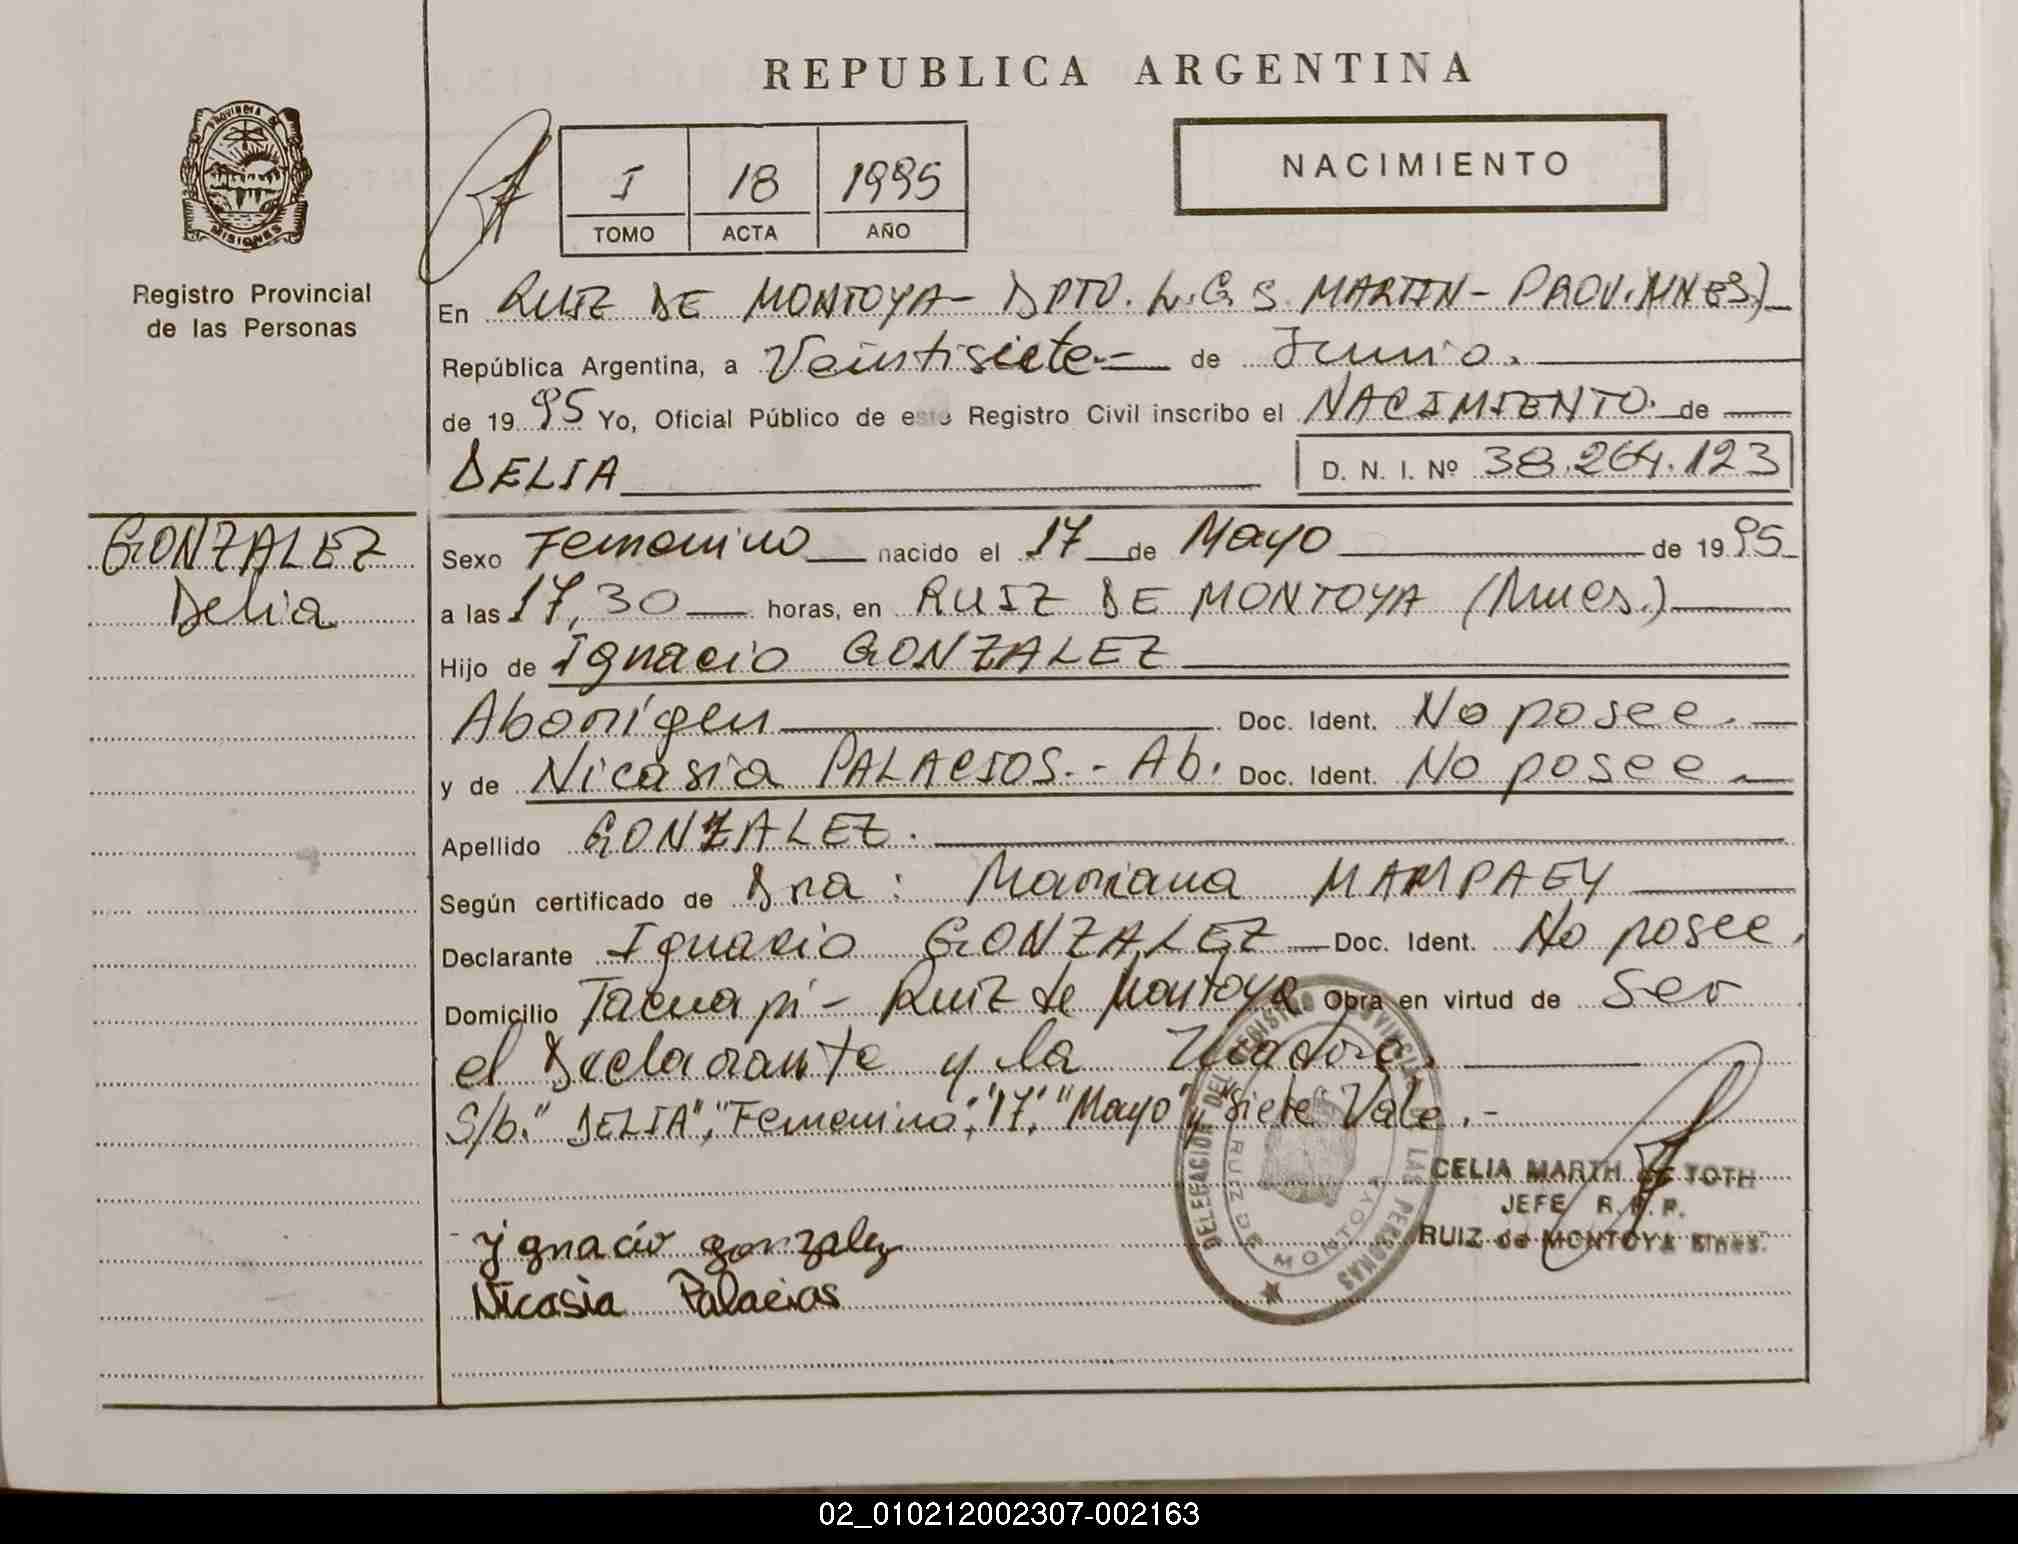 REPUBLICA ARGENTINA
PROVINCIA DE
MISIONES
Registro Provincial
de las Personas
I 18 1995
TOMO ACTA AÑO
NACIMIENTO
En RUIZ DE MONTOYA - DPTO. L.G.S. MARTIN - PROV. MNES.)
República Argentina, a Veintisiete.- de Junio.
de 1995 Yo, Oficial Público de este Registro Civil inscribo el NACIMIENTO. de
DELIA D. N. I. Nº 38.264.123
GONZALEZ
Delia
Sexo Femenino nacido el 17 de Mayo de 1995
a las 17,30 horas, en RUIZ DE MONTOYA (Mnes.)
Hijo de Ignacio GONZALEZ
Aborigen Doc. Ident. No posee.
y de Nicasia PALACIOS.- Ab. Doc. Ident. No posee
Apellido GONZALEZ.
Según certificado de Dra: Mariana MAMPAEY
Declarante Ignacio GONZALEZ Doc. Ident. No posee.
Domicilio Tacuapi - Ruiz de Montoya Obra en virtud de Ser
el Declarante y la
S/b." DELIA", "Femenino", "17", "Mayo" y "Siete" Vale.-
DELEGACION DEL REGISTRO PROVINCIAL LAS PERSONAS
RUIZ DE MONTOYA
CELIA MARTH DE TOTH
JEFE R.P.P.
RUIZ de MONTOYA Mnes.
Ignacio gonzalez
Nicasia Palacios
02_010212002307-002163